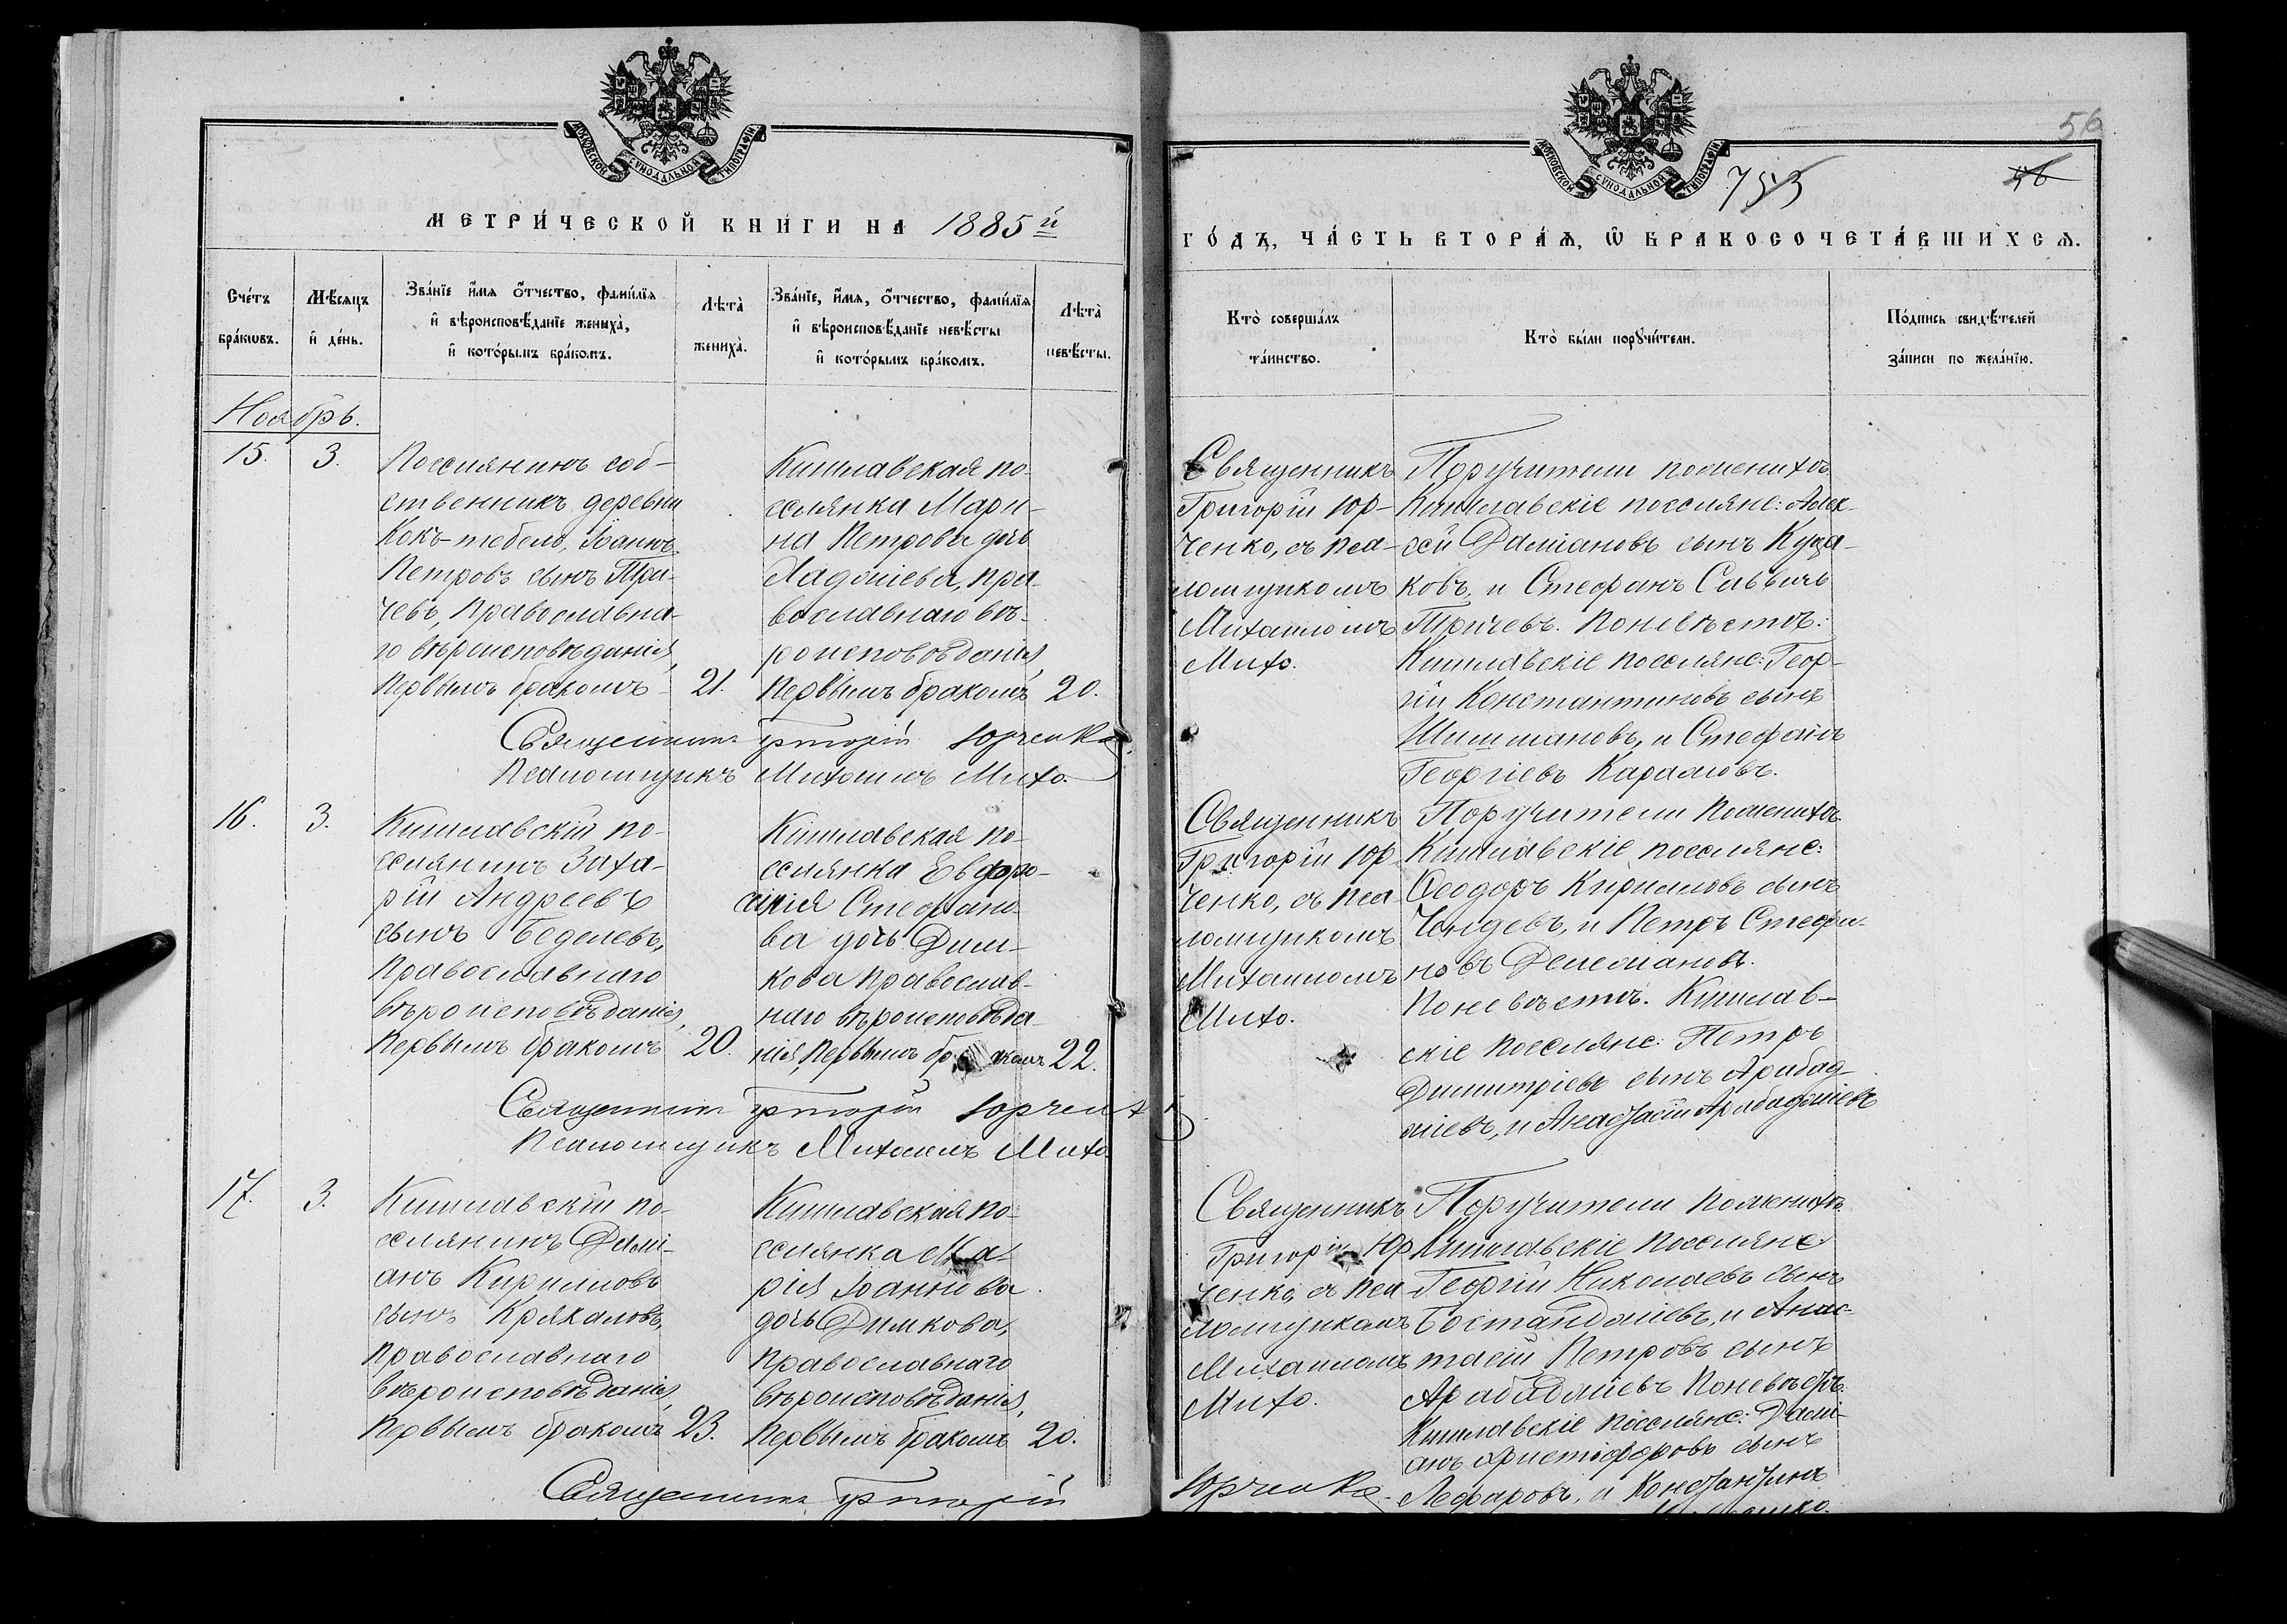 МОСКОВСКОЙ СѴНОДАЛЬНОЙ ТИПОГРАФІИ
МЕТРИ́ЧЕСКОЙ КНИ́ГИ НА 1885 й
Сче́тъ бра́ковъ.
Мѣ́сяцъ и҆ де́нь.
Зва́нїе и҆́мя ѻ҆́тчество, фами́лїя
и҆ вѣроисповѣ́данїе жениха̀,
и҆ кото́рымъ бра́комъ.
Лѣта̀ жениха̀.
Зва́нїе, и҆́мя, ѻ҆́тчество, фами́лїя
и҆ вѣроисповѣ́данїе невѣ́сты
и҆ кото́рымъ бра́комъ.
Лѣта̀ невѣ́сты.
Ноябрь.
15.
3.
Поселянинъ соб-
ственникъ деревни
Кокъ-тебель, Іоаннъ
Петровъ сынъ Три-
чевъ, Православна-
го вѣроисповѣданія,
Первымъ бракомъ
21.
Кишлавская по-
селянка Мари-
на Петрова дочь
Хаджіева, Пра-
вославнаго вѣ-
роисповѣданія,
Первымъ бракомъ
20.
Священникъ Григорій Юрченко
Псаломщикъ Михаилъ Михо.
16.
3.
Кишлавскій по-
селянинъ Заха-
рій Андреевъ
сынъ Беделевъ,
Православнаго
вѣроисповѣданія,
Первымъ бракомъ
20.
Кишлавская по-
селянка Евфро-
синія Стефано-
ва дочь Дим-
кова Православ-
наго вѣроисповѣда-
нія, Первымъ бракомъ
22.
Священникъ Григорій Юрченко
Псаломщикъ Михаилъ Михо.
17.
3.
Кишлавскій по-
селянинъ Дамі-
анъ Кирилловъ
сынъ Кряжаловъ,
Православнаго
вѣроисповѣданія,
Первымъ бракомъ
23.
Кишлавская по-
селянка Ма-
рія Іоаннова
дочь Димкова,
Православнаго
вѣроисповѣданія,
Первымъ бракомъ
20.
Священникъ Григорій
56
МОСКОВСКОЙ СѴНОДАЛЬНОЙ ТИПОГРАФІИ
753
56
ГО́ДЪ, ЧА́СТЬ ВТОРА́Ѧ, Ѡ҆ БРАКОСОЧЕТА́ВШИХСѦ.
Кто̀ соверша́лъ та́инство.
Кто̀ бы́ли порꙋчи́тели.
По́дпись свидѣ́телей за́писи по жела́нїю.
Священникъ
Григорій Юр-
ченко, съ Пса-
ломщикомъ
Михаиломъ
Михо.
Поручители по женихѣ
Кишлавскіе поселяне: Алек-
сѣй Даміановъ сынъ Куца-
ковъ, и Стефанъ Саввичъ
Тричевъ. По невѣстѣ:
Кишлавскіе поселяне: Геор-
гій Константиновъ сынъ
Шишмановъ, и Стефанъ
Георгіевъ Караловъ.
Священникъ
Григорій Юр-
ченко, съ Пса-
ломщикомъ
Михаиломъ
Михо.
Поручители По женихѣ
Кишлавскіе поселяне:
Ѳеодоръ Кирилловъ сынъ
Чендевъ, и Петръ Стефа-
новъ
По невѣстѣ. Кишлав-
скіе поселяне: Петръ
Димитріевъ сынъ Арабад-
жіевъ, и Анастасій Арабаджіевъ
Священникъ
Григорій Юр
ченко, съ Пса
ломщикомъ
Михаиломъ
Михо.
Поручители по женихѣ
Кишлавскіе поселяне:
Георгій Николаевъ сынъ
Бостанджіевъ, и Анас-
тасій Петровъ сынъ
Арабаджіевъ По невѣстѣ.
Кишлавскіе поселяне: Дамі-
анъ Христофоровъ сынъ
Лефаровъ, и Константинъ
Юрченко.